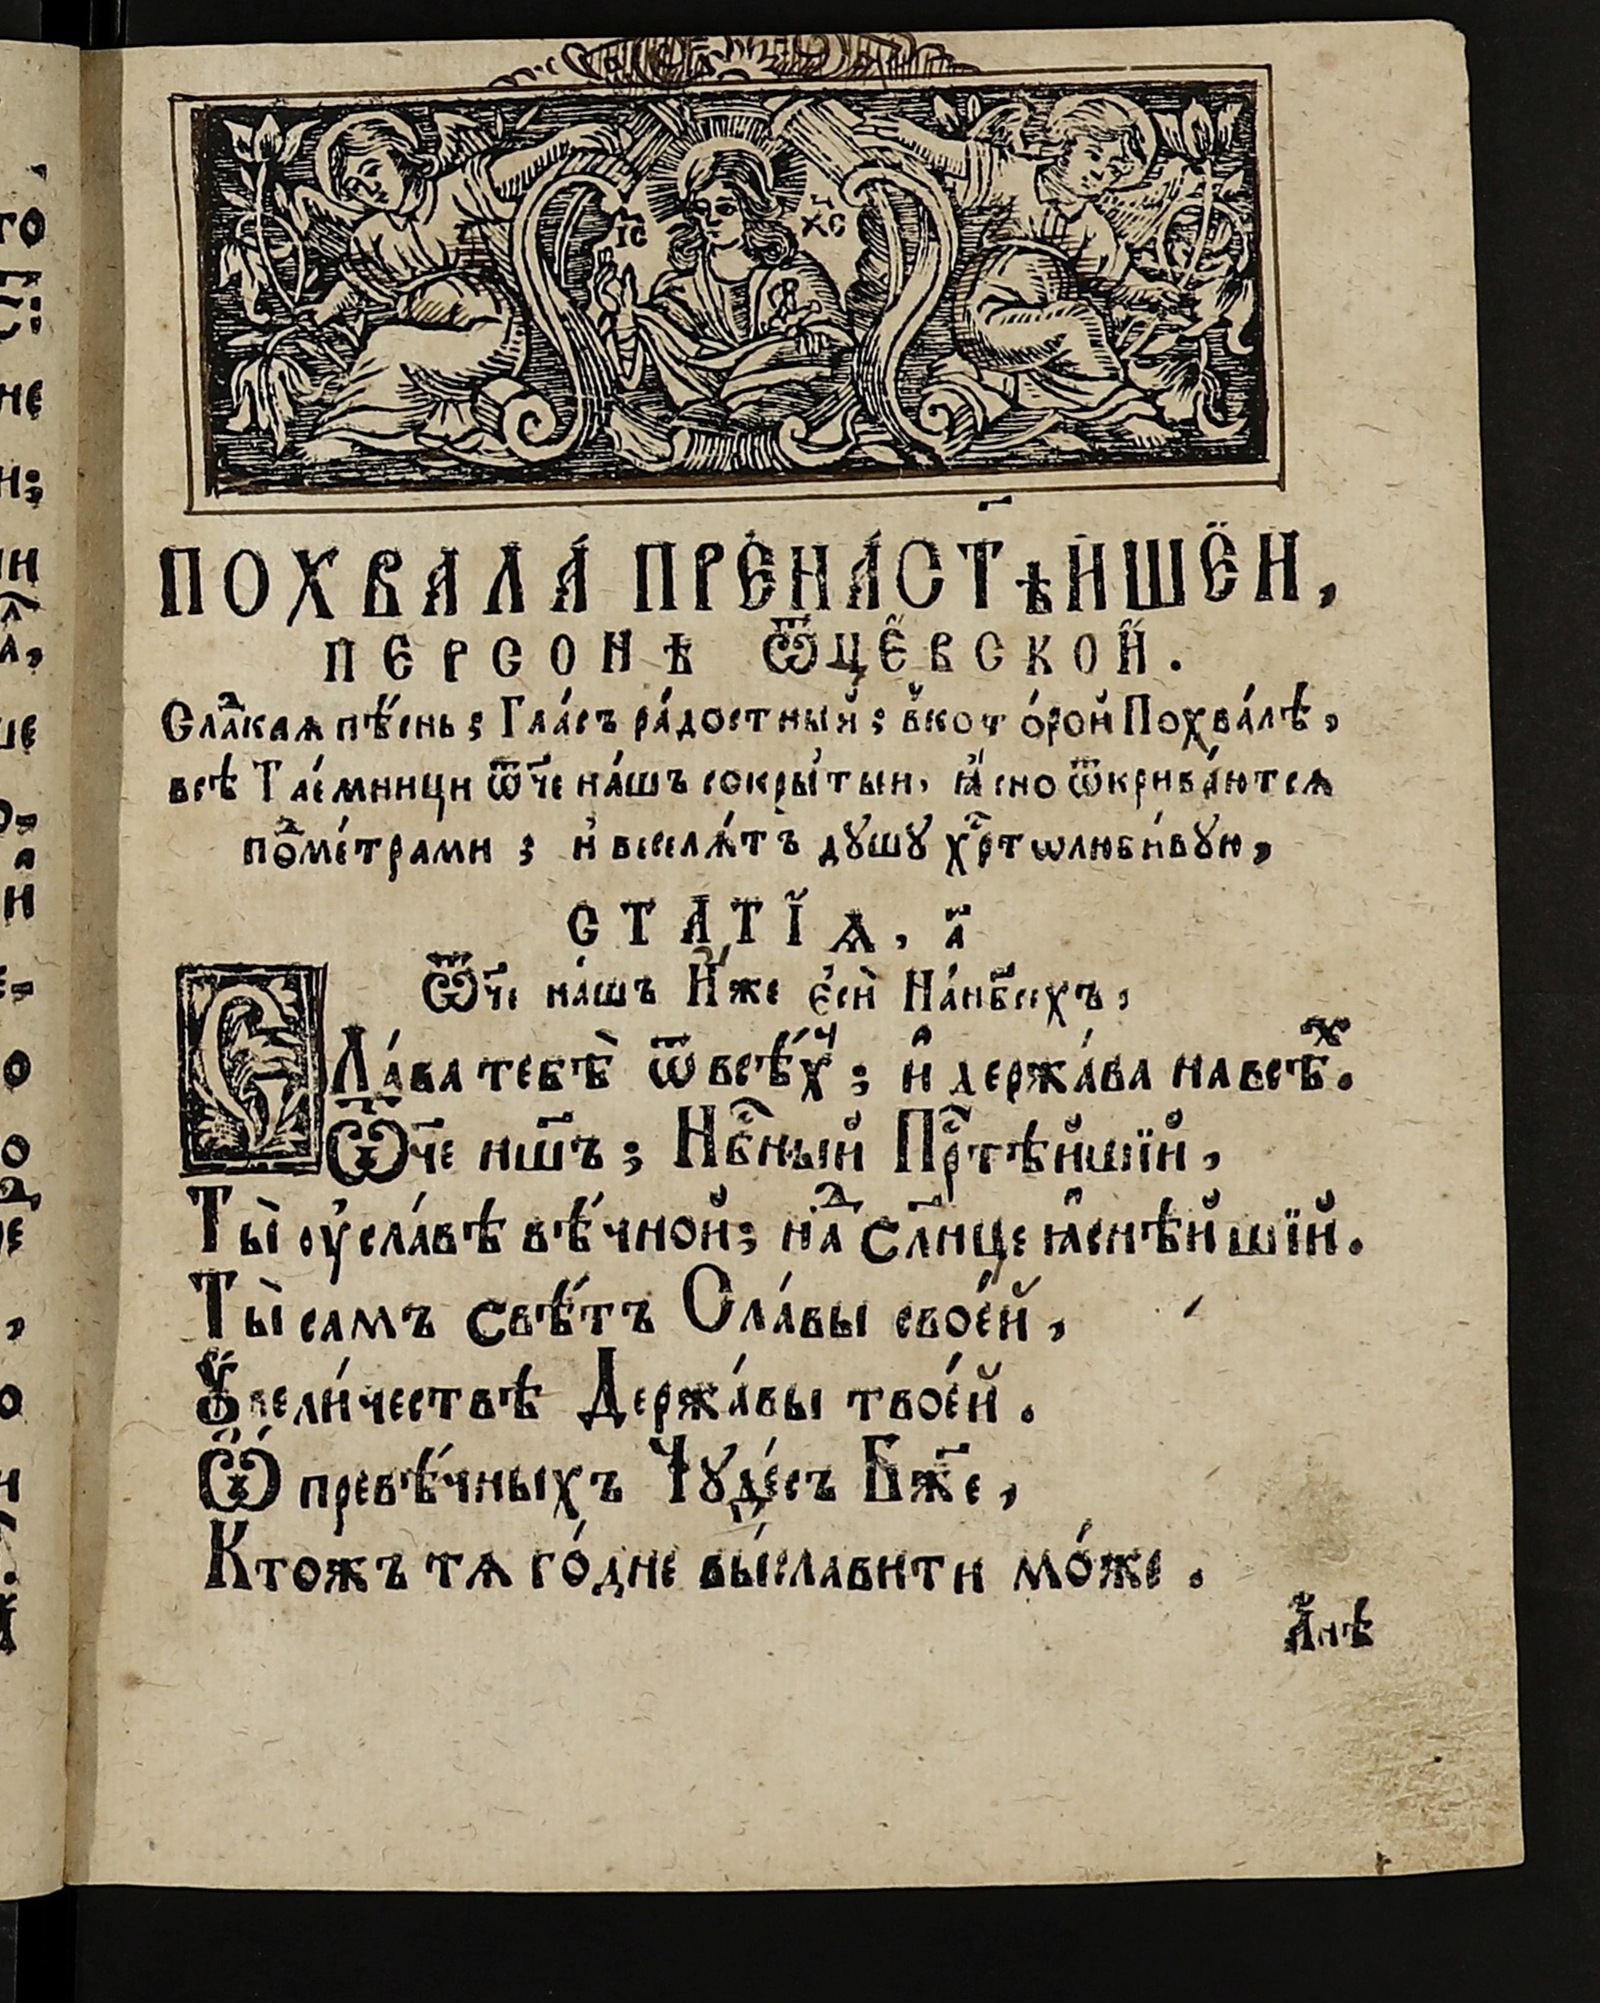 ІС ХС
ПОХВАЛА́ ПРЕНАСТ҃ѢИШЕЙ,
ПЕРСОНѢ Ѿц҃ЕВСКОЙ.
Сла́дкаѧ пѣ́снь; Гла́съ ра́достный; в̾кото́рой Похва́лѣ,
всѣ Тае́мници Ѿч҃е на́шъ сокры́тыи, ꙗ́сно ѿкрива́ютсѧ
под̾ме́трами; и҆ веселѧ́тъ дꙋшꙋ хр҃тѡлюби́вꙋю,
СТАТЇѦ, а҃
Ѿч҃е на́шъ И҆́же є҆сѝ На́нб҃сехъ,
СЛа́ва тебѣ̀ ѿ всѣ́хъ; и҆ держа́ва на всѣ́х.
Ѿч҃е нш҃ъ; Нб҃ный Прⷭ҇тѣ́йшїй,
Ты̀ ᲂу҆ сла́вѣ вѣ́чной; над̾ сл҃нце ꙗ҆снѣ́йшїй.
Ты̀ самъ свѣ́тъ Сла́вы свое́й,
Ꙋ҆вели́чествѣ Держа́вы твое́й.
Ѽ превѣ́чныхъ Чꙋде́съ Бж҃е,
Ктожъ тѧ го́дне вы́славити мо́же.
А҆нѣ